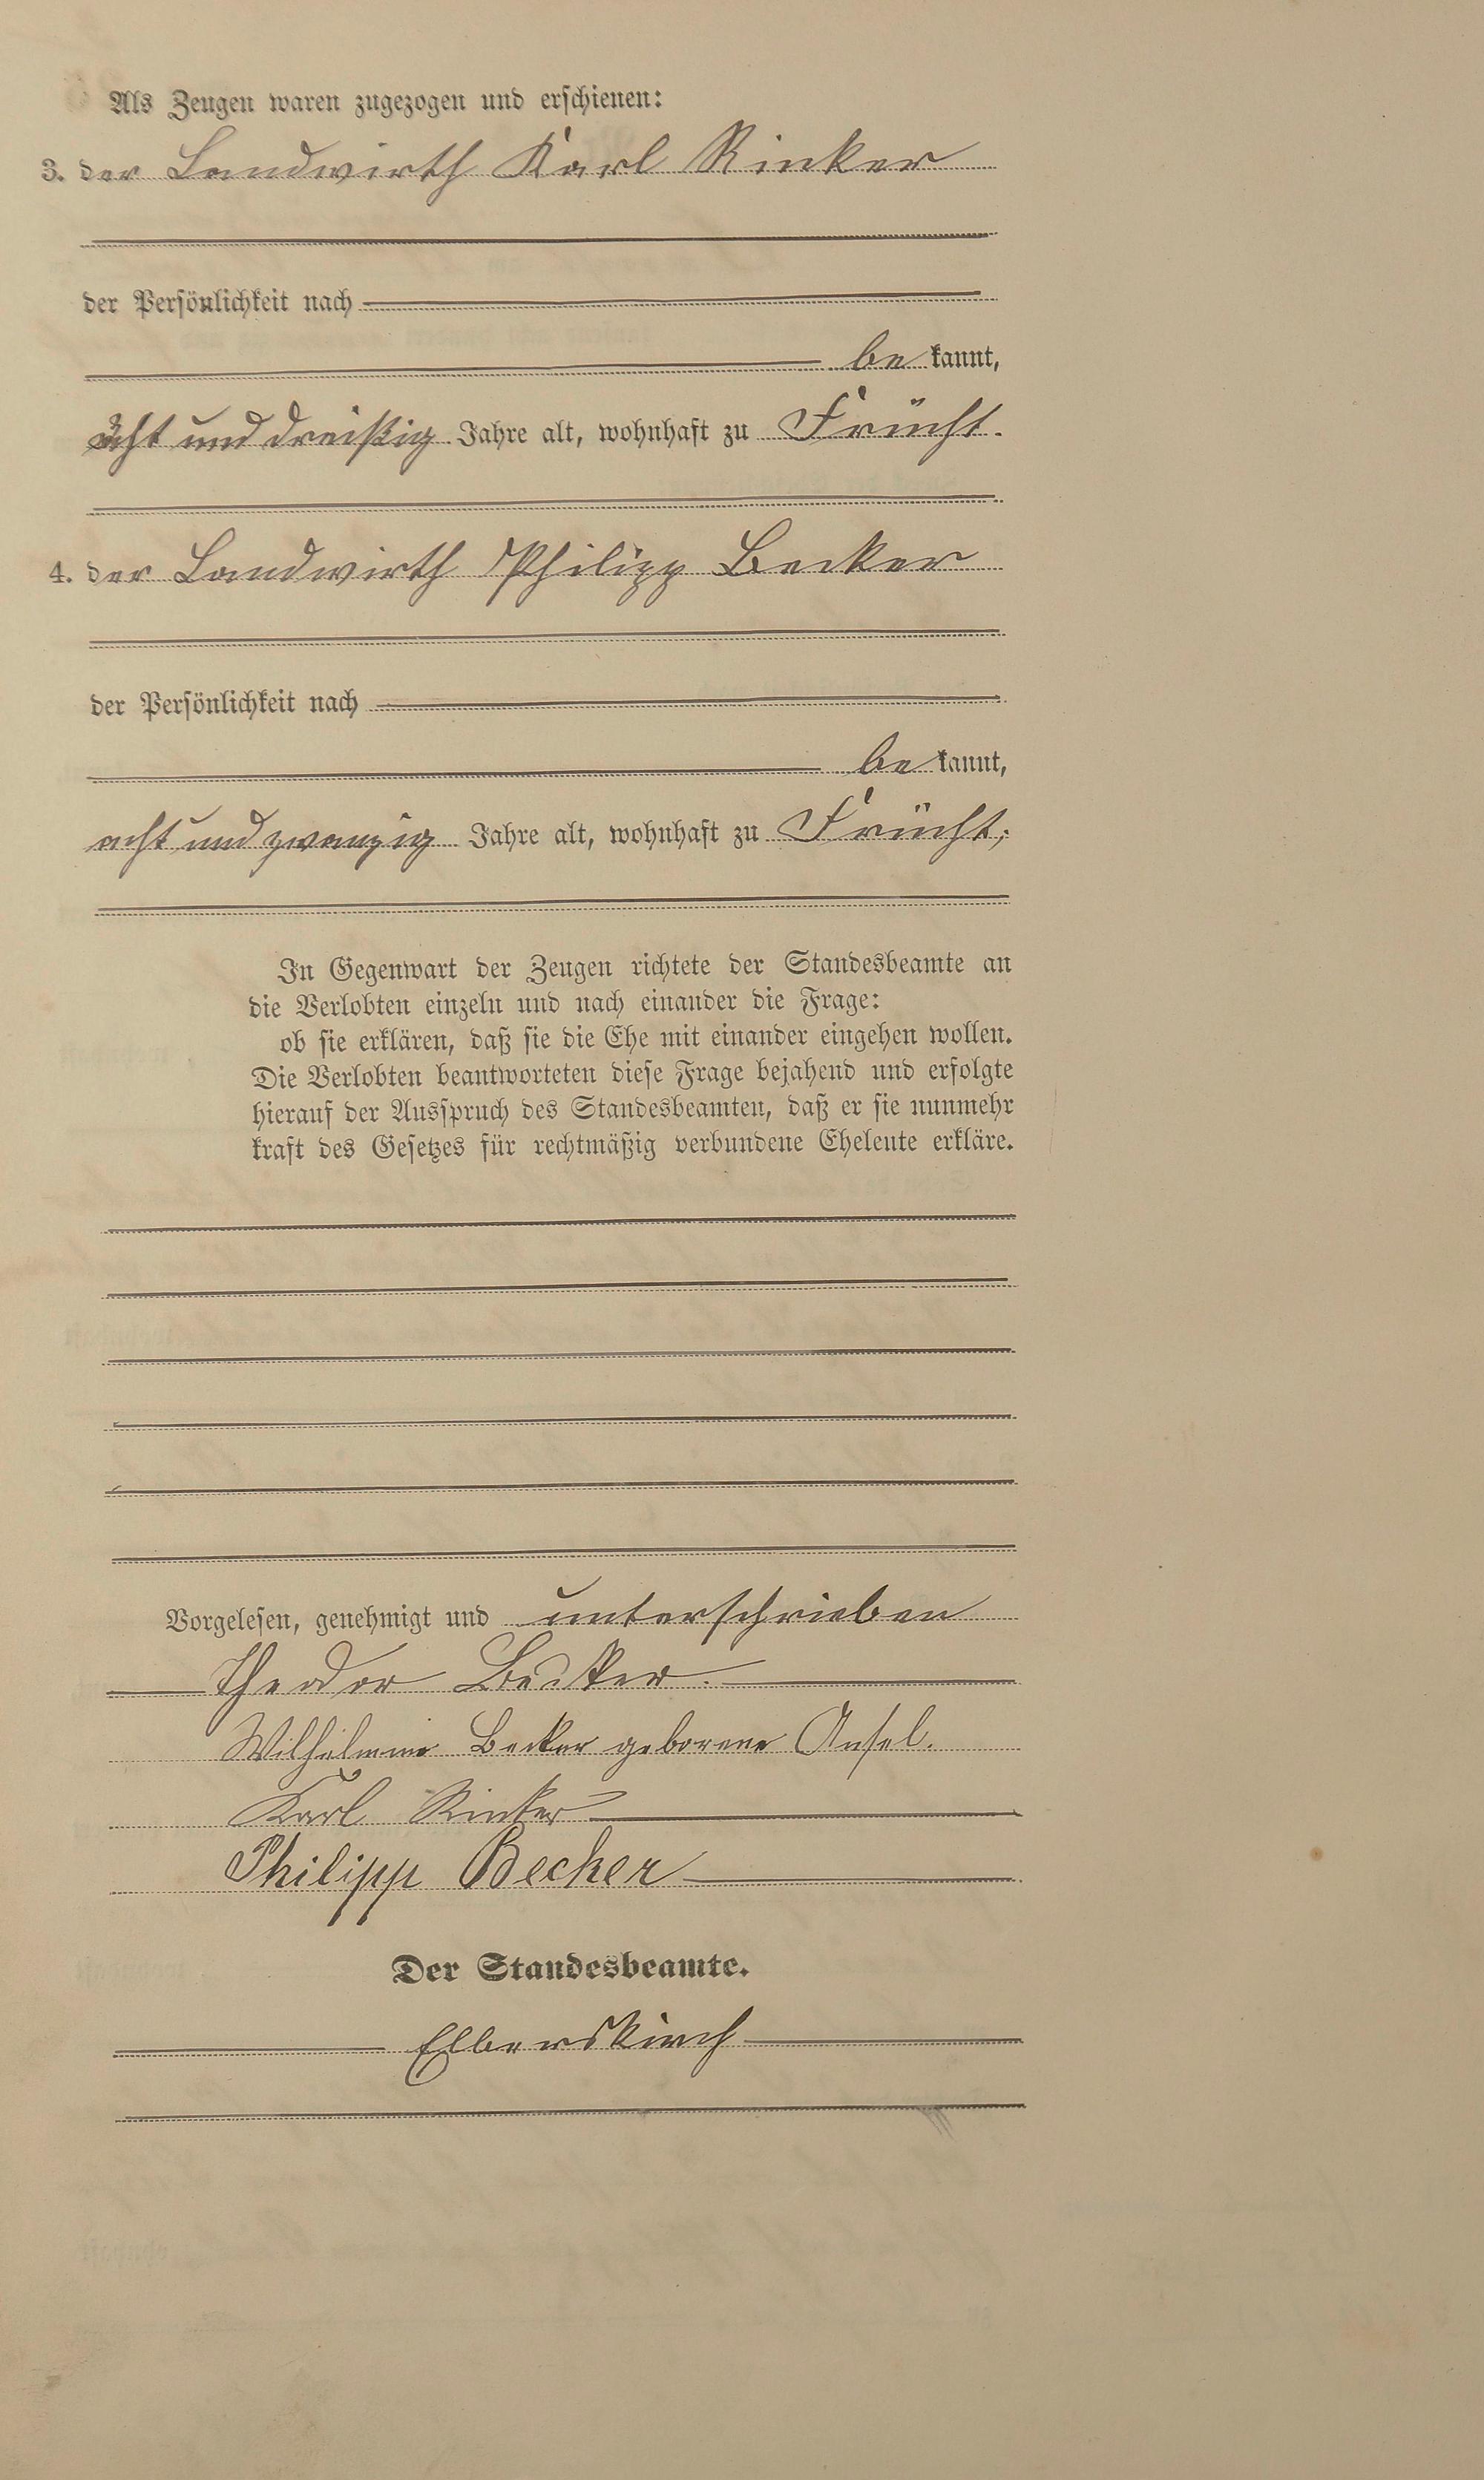 Als Zeugen waren zugezogen und erschienen:
3. der Landwirth Karl Rinker
der Persönlichkeit nach
bekannt,
acht und dreißig Jahre alt, wohnhaft zu Frücht.
4. der Landwirth Philipp Becker
der Persönlichkeit nach
bekannt,
acht und zwanzig Jahre alt, wohnhaft zu Frücht;
In Gegenwart der Zeugen richtete der Standesbeamte an
die Verlobten einzeln und nach einander die Frage:
ob sie erklären, daß sie die Ehe mit einander eingehen wollen.
Die Verlobten beantworteten diese Frage bejahend und erfolgte
hierauf der Ausspruch des Standesbeamten, daß er sie nunmehr
kraft des Gesetzes für rechtmäßig verbundene Eheleute erkläre.
Vorgelesen, genehmigt und unterschrieben
Theodor Becker.
Wilhelmine Becker geborene Ansel.
Karl Rinker
Philipp Becker
Der Standesbeamte.
Elberskirch